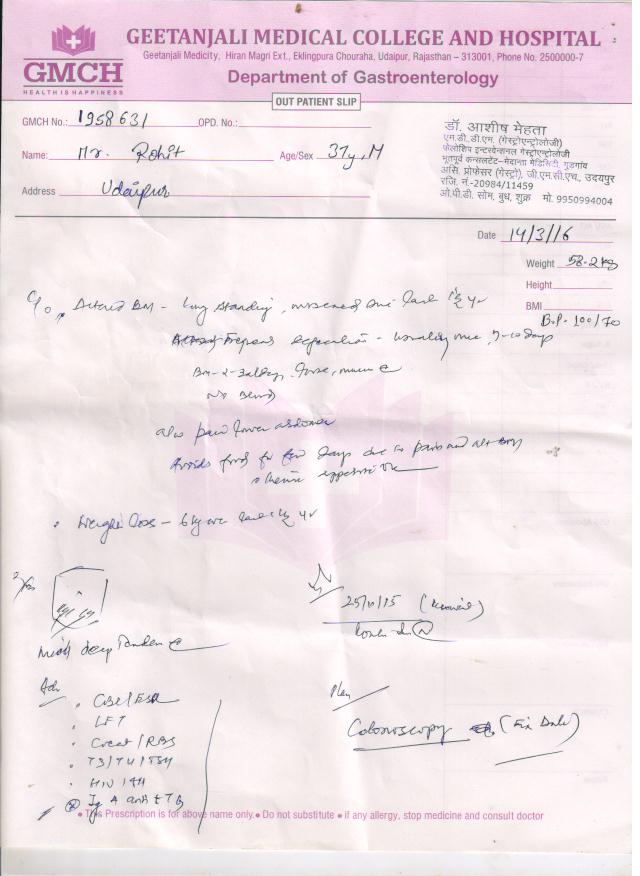 GEETANJALI MEDICAL COLLEGE AND HOSPITAL
Geetanjali Medicity, Hiran Magri Ext., Eklingpura Chouraha, Udaipur, Rajasthan – 313001, Phone No. 2500000-7
GMCH
HEALTH IS HAPPINESS
Department of Gastroenterology
OUT PATIENT SLIP
GMCH No.: 1958631 OPD. No.:
Name: Mr. Rohit Age/Sex 37y, M
Address Udaipur
डॉ. आशीष मेहता
एम.डी.डी.एम. (गेस्ट्रोएन्ट्रोलॉजी)
फेलोशिप इन्टरवेन्शनल गेस्ट्रोएन्ट्रोलॉजी
भूतपूर्व कन्सलटेंट–मेदान्ता मेडिसिटी, गुड़गांव
असि. प्रोफेसर (गेस्ट्रो), जी.एम.सी.एच., उदयपुर
रजि. नं.-20984/11459
ओ.पी.डी. सोम, बुध, शुक्र मो. 9950994004
Date 14/3/16
Weight 58.2 kg
Height
BMI
B.P. 100/70
C/o Altered BM - long standing, since last 1½ yr
days
No Blood
also pain lower abdomen
Avoids food for few days due to pain and alt BM
Weight loss - 6 kg over last 1½ yr
25/11/15
Mild deep tenderness
Adv
• CBC/ESR
• LFT
• Creat/RBS
• T3/T4/TSH
• HIV
IgA anti tTG
Plan
Colonoscopy (Fix Date)
• This Prescription is for above name only. • Do not substitute • if any allergy, stop medicine and consult doctor